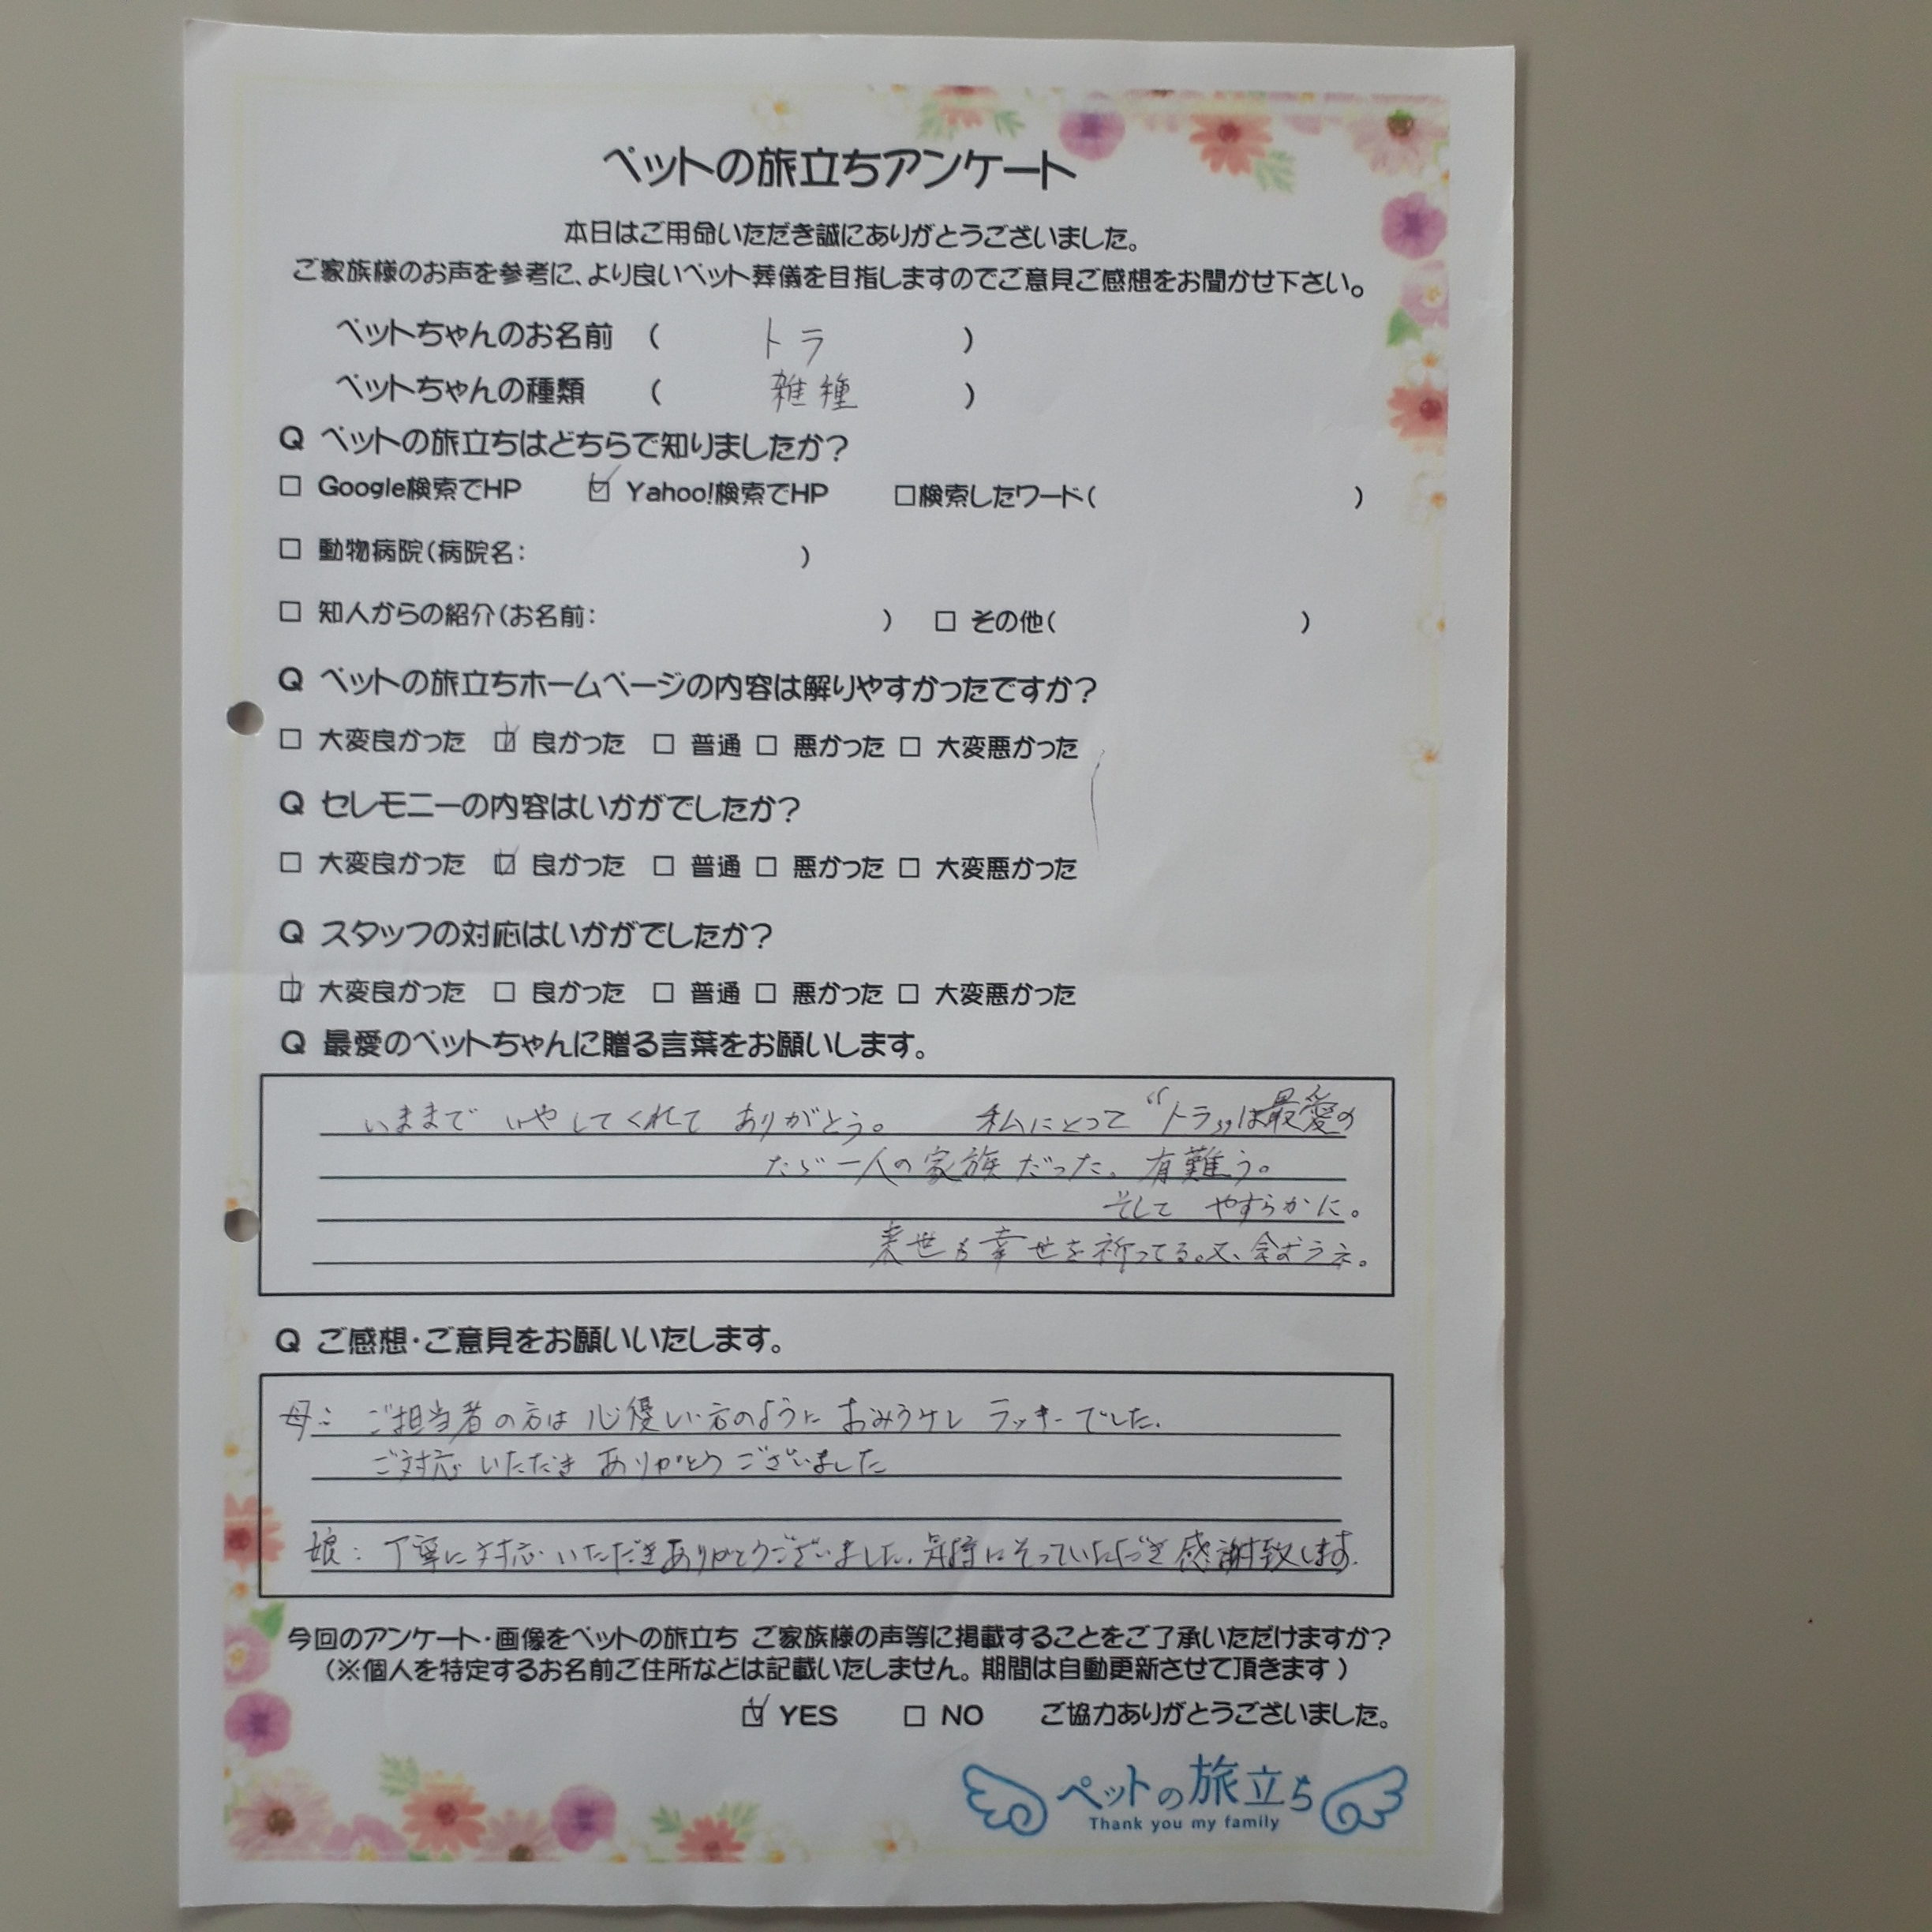 ペットの旅立ちアンケート
本日はご用命いただき誠にありがとうございました。
ご家族様のお声を参考に、より良いペット葬儀を目指しますのでご意見ご感想をお聞かせ下さい。
ペットちゃんのお名前 ( トラ )
ペットちゃんの種類 ( 雑種 )
Q ペットの旅立ちはどちらで知りましたか?
□ Google検索でHP ☑ Yahoo!検索でHP □検索したワード( )
□ 動物病院(病院名: )
□ 知人からの紹介(お名前: ) □ その他( )
Q ペットの旅立ちホームページの内容は解りやすかったですか?
□ 大変良かった ☑ 良かった □ 普通 □ 悪かった □ 大変悪かった
Q セレモニーの内容はいかがでしたか?
□ 大変良かった ☑ 良かった □ 普通 □ 悪かった □ 大変悪かった
Q スタッフの対応はいかがでしたか?
☑ 大変良かった □ 良かった □ 普通 □ 悪かった □ 大変悪かった
Q 最愛のペットちゃんに贈る言葉をお願いします。
いままで いやしてくれて ありがとう。 私にとって “トラ„は最愛の
たゞ一人の家族だった。有難う。
そして やすらかに。
来世も幸せを祈ってる。又、会おうネ。
Q ご感想・ご意見をお願いいたします。
母: ご担当者の方は心優しい方のように おみうけし ラッキーでした.
ご対応 いただき ありがとう ございました
娘: 丁寧に対応いただきありがとうございました. 気持にそっていただき 感謝致します.
今回のアンケート・画像をペットの旅立ち ご家族様の声等に掲載することをご了承いただけますか?
(※個人を特定するお名前ご住所などは記載いたしません。期間は自動更新させて頂きます)
☑ YES □ NO ご協力ありがとうございました。
ペットの旅立ち
Thank you my family